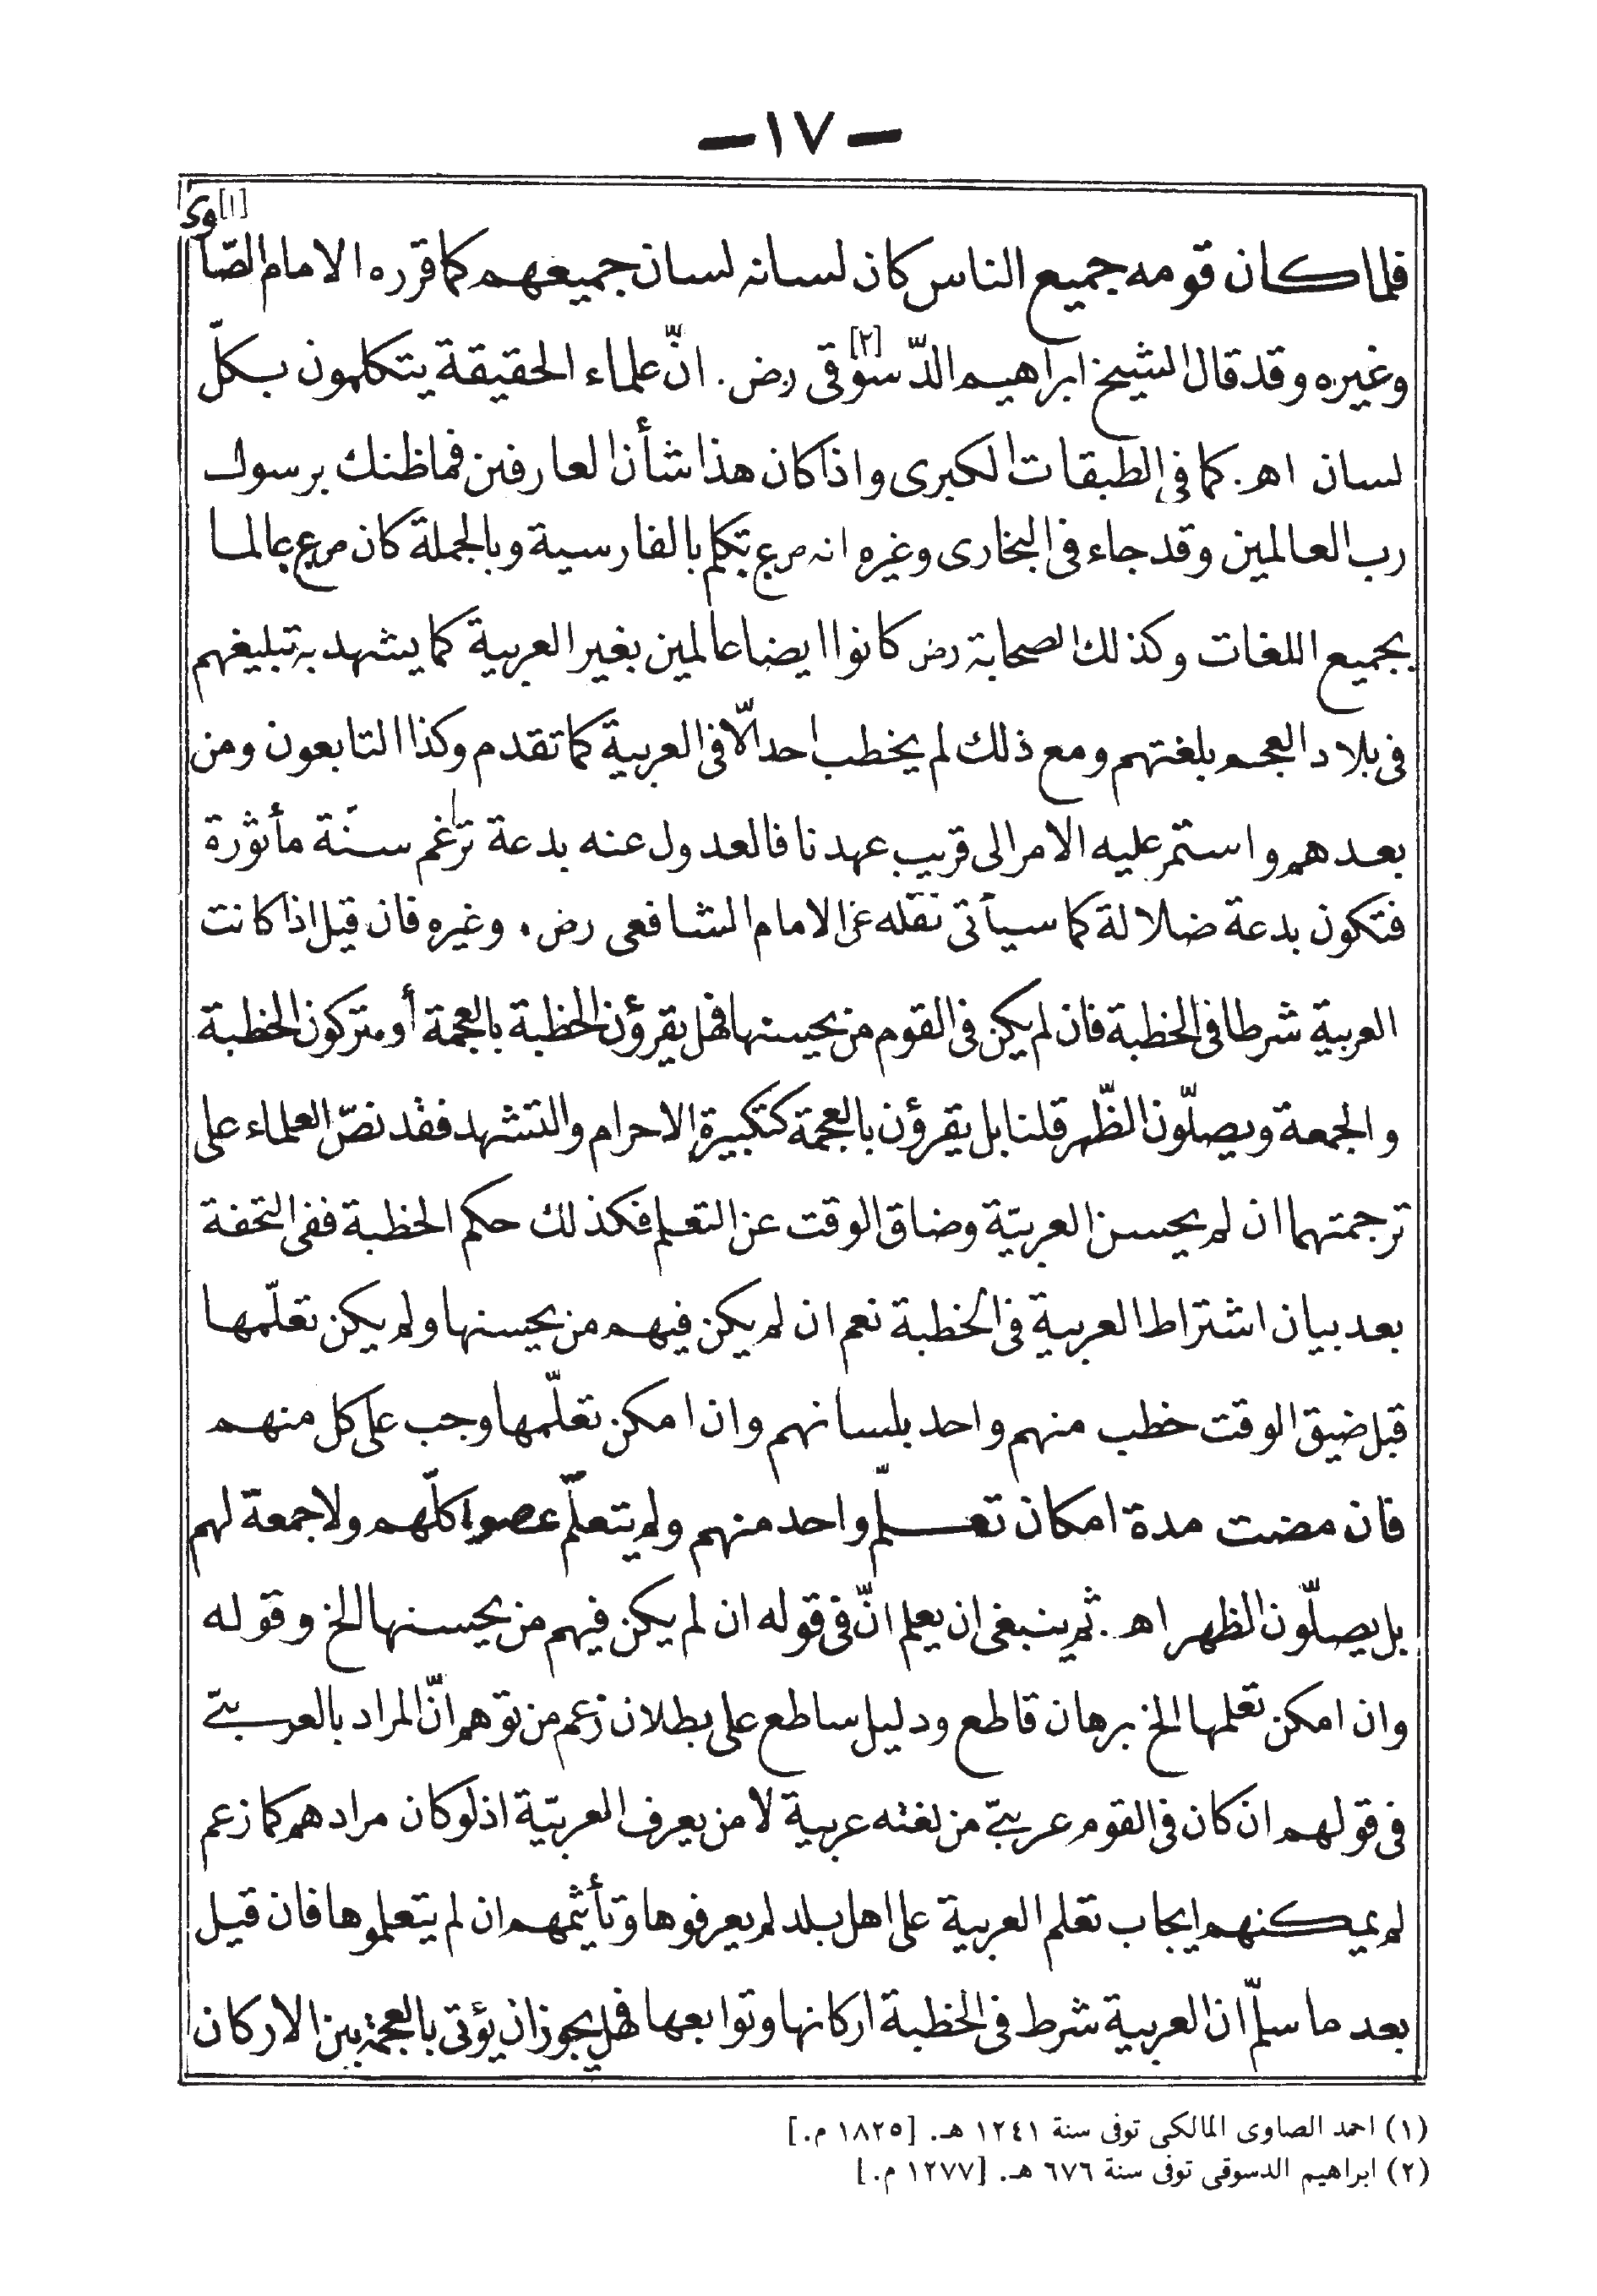 — ١٧ —
فلما كان قومه جميع الناس كان لسانه لسان جميعهم كما قرره الامام الصّاوى [١]
وغيره وقد قال الشيخ ابراهيم الدّسوقى [٢] رض. انّ علماء الحقيقة يتكلمون بكلّ
لسان اهـ. كما فى الطبقات الكبرى واذا كان هذا شأن العارفين فما ظنك برسول
رب العالمين وقد جاء فى البخارى وغيره انه صرع تكلم بالفارسية وبالجملة كان صرع عالما
بجميع اللغات وكذلك الصحابة رض كانوا ايضا عالمين بغير العربية كما يشهد به تبليغهم
فى بلاد العجم بلغتهم ومع ذلك لم يخطب احد الّا فى العربية كما تقدم وكذا التابعون ومن
بعدهم واستمر عليه الامر الى قريب عهدنا فالعدول عنه بدعة تراغم سنّة مأثورة
فتكون بدعة ضلالة كما سيأتى نقله عن الامام الشافعى رض. وغيره فان قيل اذا كانت
العربية شرطا فى الخطبة فان لم يكن فى القوم من يحسنها فهل يقرؤن الخطبة بالعجمة أو يتركون الخطبة
و الجمعة ويصلّون الظّهر قلنا بل يقرؤن بالعجمة كتكبيرة الاحرام والتشهد فقد نصّ العلماء على
ترجمتهما ان لم يحسن العربيّة وضاق الوقت عن التعلم فكذلك حكم الخطبة ففى التحفة
بعد بيان اشتراط العربية فى الخطبة نعم ان لم يكن فيهم من يحسنها ولم يكن تعلّمها
قبل ضيق الوقت خطب منهم واحد بلسانهم وان امكن تعلّمها وجب على كل منهم
فان مضت مدة امكان تعلّم واحد منهم ولم يتعلّم عصوا كلّهم ولا جمعة لهم
بل يصلّون الظهر اهـ. ثم ينبغى ان يعلم انّ فى قوله ان لم يكن فيهم من يحسنها الخ وقوله
وان امكن تعلمها الخ برهان قاطع ودليل ساطع على بطلان زعم من توهم انّ المراد بالعربىّ
فى قولهم ان كان فى القوم عربىّ من لغته عربية لا من يعرف العربيّة اذ لو كان مرادهم كما زعم
لم يمكنهم ايجاب تعلم العربية على اهل بلد لم يعرفوها وتأثيمهم ان لم يتعلموها فان قيل
بعد ما سلّم ان العربية شرط فى الخطبة اركانها وتوابعها فهل يجوز ان يؤتى بالعجمة بين الاركان
(١) احمد الصاوى المالكى توفى سنة ١٢٤١ هـ. [١٨٢٥ م.]
(٢) ابراهيم الدسوقى توفى سنة ٦٧٦ هـ. [١٢٧٧ م.]